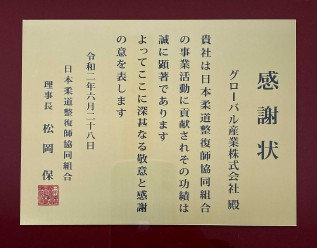 感謝状
グローバル産業株式会社 殿
貴社は日本柔道整復師協同組合
の事業活動に貢献されその功績は
誠に顕著であります
よってここに深甚なる敬意と感謝
の意を表します
令和二年六月二十八日
日本柔道整復師協同組合
理事長 松岡 保